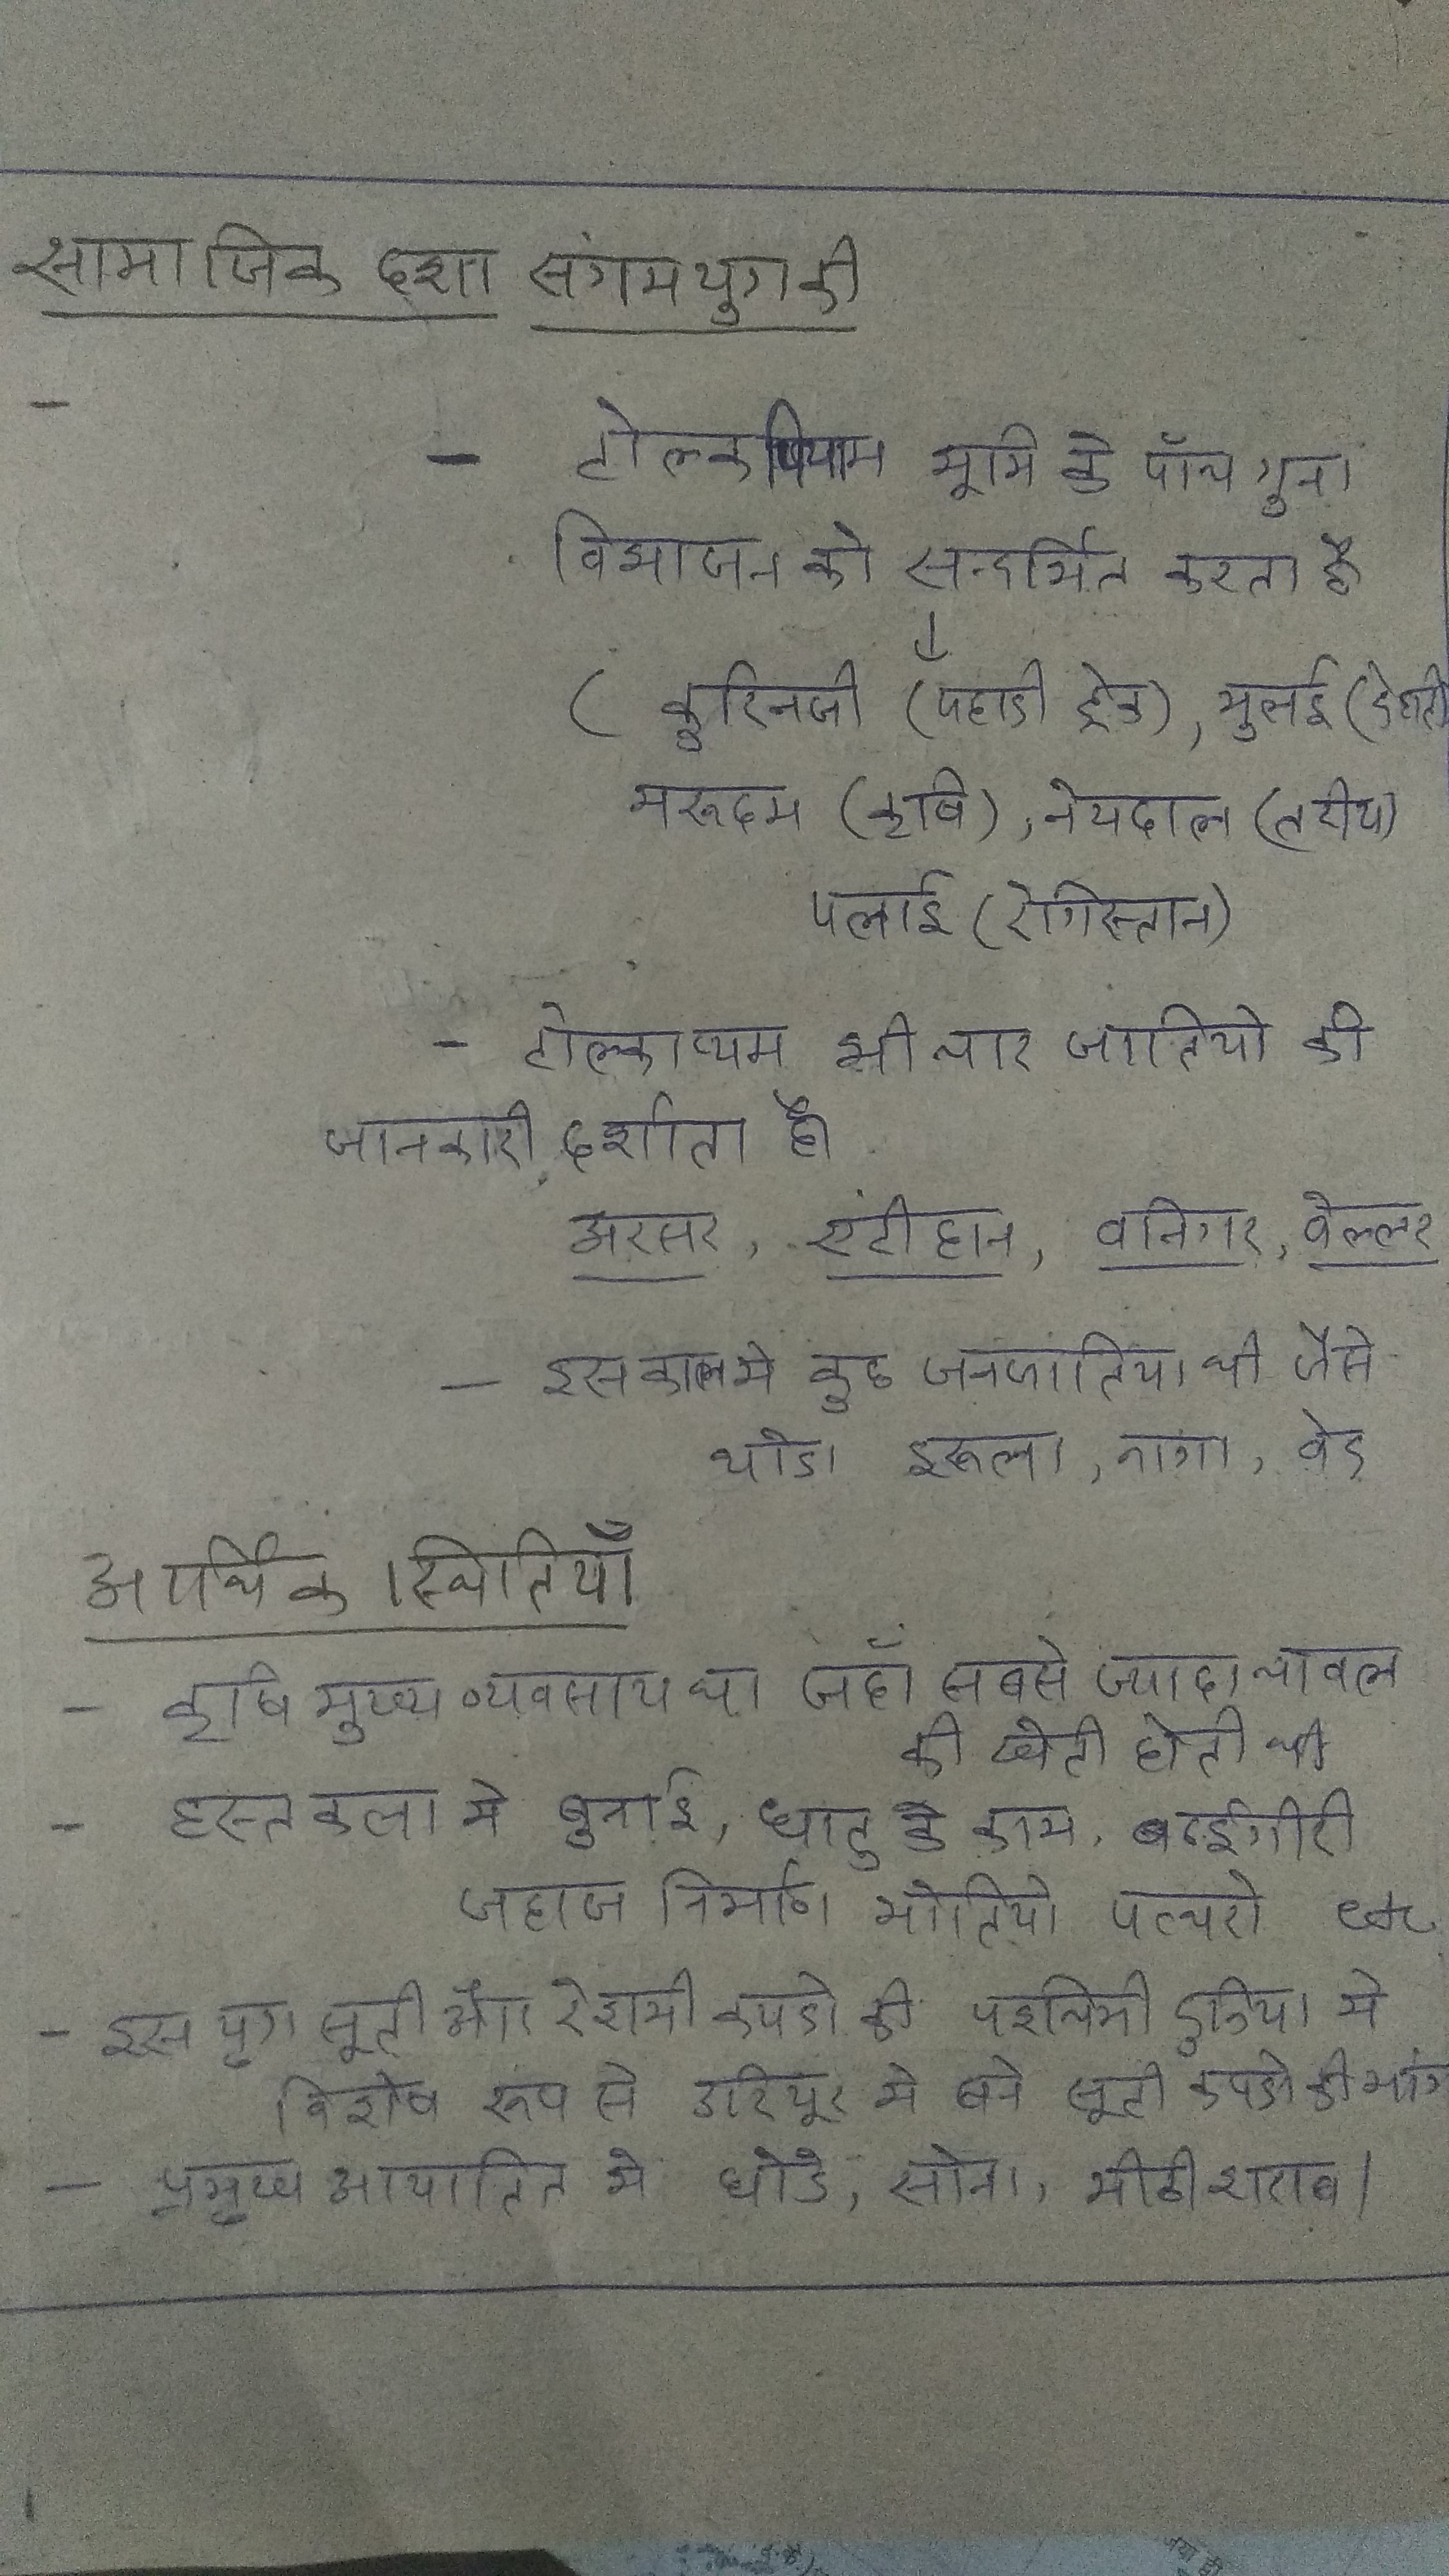 सामाजिक दशा संगमयुग की
- टोल्कपियाम भूमि के पाँच गुना
विभाजन को सन्दर्भित करता है
( कुरिनजी (पहाडी ट्रेक), मुलई (देहाती
मरूदम (कृषि), नेयदाल (तटीय)
पलाई (रेगिस्तान)
- टोल्काप्यम भी चार जातियो की
जानकारी दर्शाता है
अरसर, एंटीहान, वनिगर, वेल्लर
- इस काल मे कुछ जनजातिया थी जैसे
थोडा इरूला, नागा, वेडर
आर्थिक स्थितियाँ
- कृषि मुख्य व्यवसाय था जहाँ सबसे ज्यादा चावल
की खेती होती थी
- हस्तकला मे बुनाई, धातु के काम, बढईगीरी
जहाज निर्माण मोतियो पत्थरो etc
- इस युग सूती और रेशमी कपडो की पश्चिमी दुनिया मे
विशेष रूप से उरियूर मे बने सूती कपडो की मांग
- प्रमुख आयातित मे घोडे, सोना, मीठी शराब।